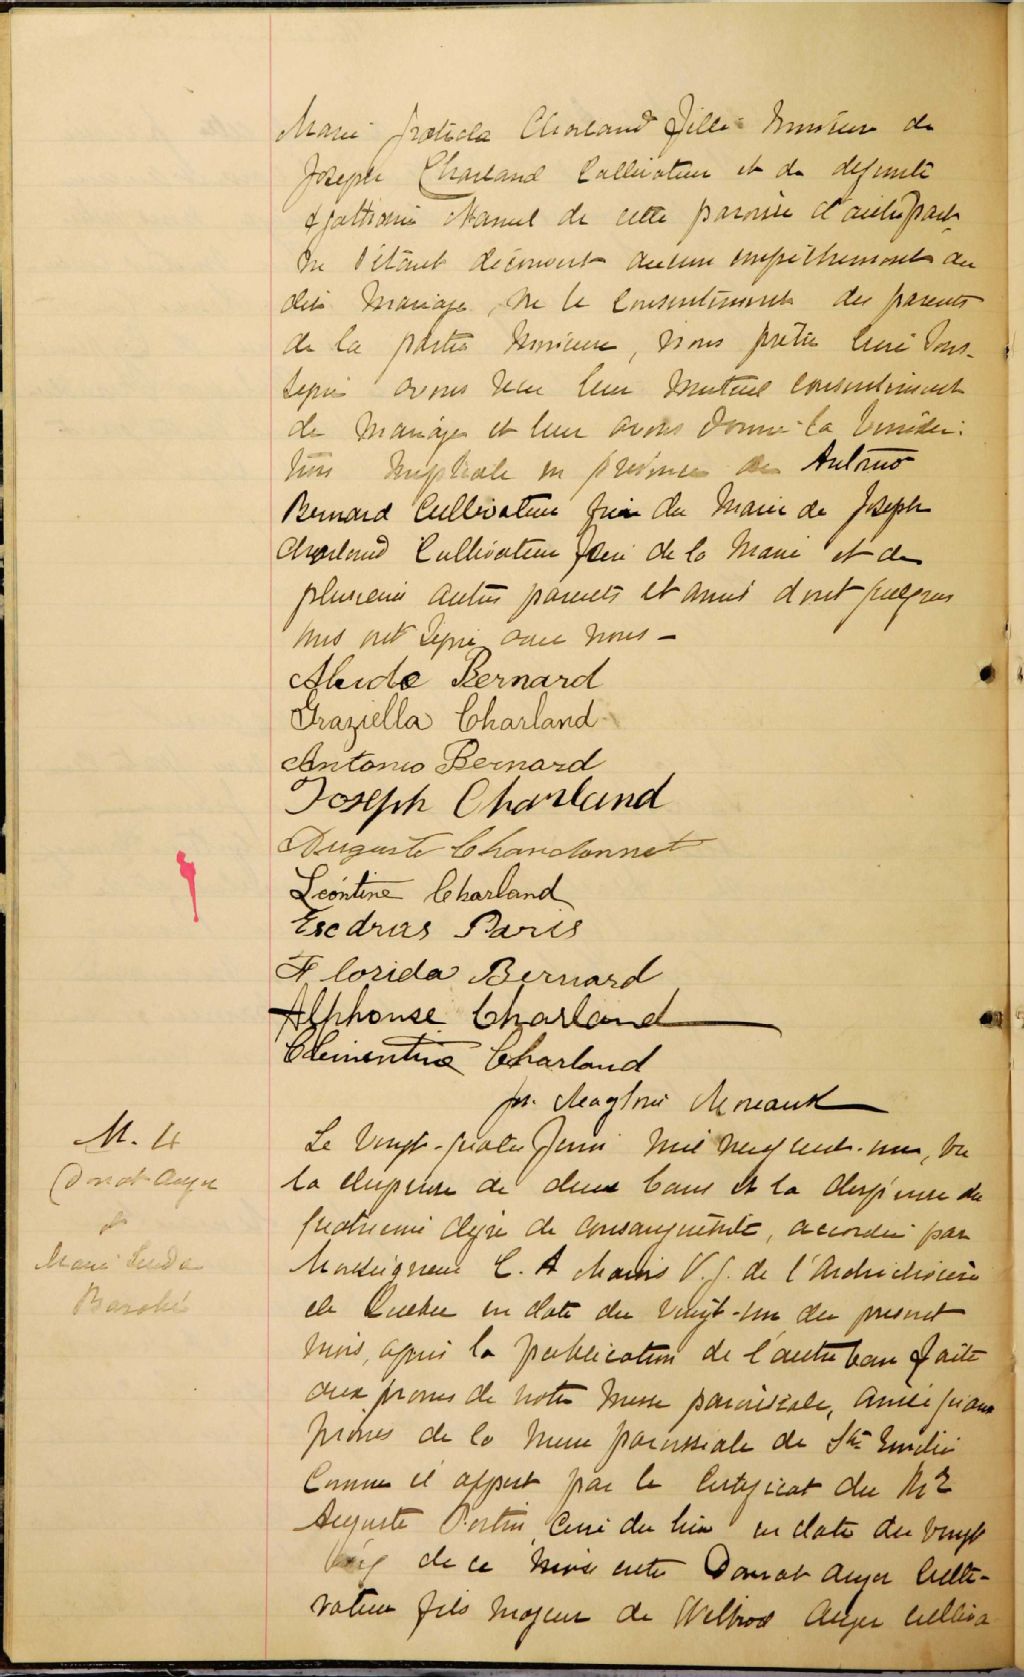 Marie Gratiela Charland fille mineure de
Joseph Charland Cultivateur et de defunte
Hamel de cette paroisse d'autre part
ne s'étant découvert aucun empêchement au
dit mariage, vu le consentement des parents
de la partie mineure, nous prêtre curé sous-
signé avons reçu leur mutuel consentement
de mariage et leur avons donné la bénédic-
tion nuptiale en présence de Antonio
Bernard Cultivateur frère du Marié de Joseph
Charland Cultivateur père de la Marié et de
plusieurs autres parents et amis dont quelques
uns ont signé avec nous -
Alcide Bernard
Graziella Charland
Antonio Bernard
Joseph Charland
Auguste Chandonnet
Léontine Charland
Esdras Paris
Florida Bernard
Alphonse Charland
Clementine Charland
Jos. Magloire Moreault
M. 4
Donat Auger
&
Marie
Baraké
Le vingt-quatre Juin mil neuf cent-un, vu
la dispense de deux bans et la dispense du
quatrième degré de consanguinité, accordée par
Monseigneur C. A Marois V.G. de l'Archidiocèse
de Québec en date du vingt-un du présent
mois, après la publication de l'autre ban faite
aux prones de notre messe paroissiale, ainsi qu'aux
prones de la messe paroissiale de Ste Emélie
Comme il appert par le Certificat du Mr
Auguste curé du lieu en date du vingt
de ce mois entre Donat Auger Culti-
vateur fils majeur de Wilbrod Auger cultiva